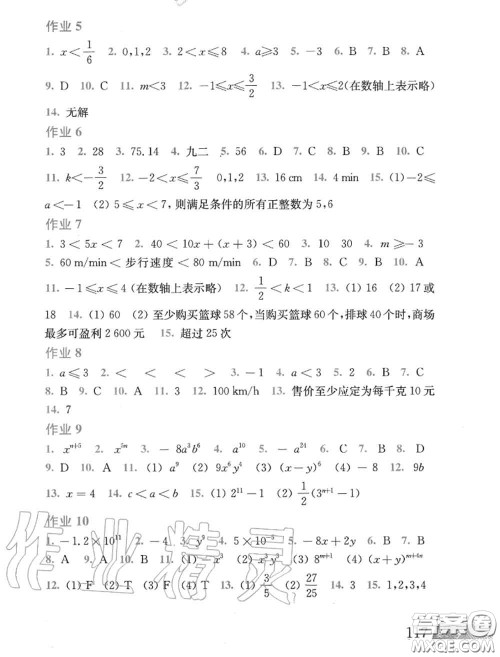 作业 5
1. x<1/6 2. 0,1,2 3. 2<x≤8 4. a≥3 5. -3 6. B 7. B 8. A
9. D 10. C 11. m<3 12. -1≤x≤3/2 13. -1<x≤2(在数轴上表示略)
14. 无解
作业 6
1. 3 2. 28 3. 75,14 4. 九二 5. 56 6. D 7. C 8. B 9. B 10. C
11. k<-3/2 12. -2<x≤7/3 0,1,2 13. 16 cm 14. 4 min 15. (1) -2≤
a<-1 (2) 5≤x<7, 则满足条件的所有正整数为 5,6
作业 7
1. 3<5x<7 2. 40<10x+(x+3)<60 3. 10 30 4. m≥-3
5. 60 m/min<步行速度<80 m/min 6. D 7. B 8. B 9. B 10. A
11. -1≤x≤4 (在数轴上表示略) 12. 1/2<k<1 13. (1) 16 (2) 17 或
18 14. (1) 60 (2) 至少购买篮球 58 个,当购买篮球 60 个,排球 40 个时,商场
最多可盈利 2 600 元 15. 超过 25 次
作业 8
1. a≤3 2. < < > > 3. -1 4. a<3 5. 2 6. B 7. C
8. B 9. C 10. A 11. 3 12. 100 km/h 13. 售价至少应定为每千克 10 元
14. 7
作业 9
1. xⁿ⁺⁵ 2. x⁵ᵐ 3. -8a³b⁶ 4. a¹⁰ 5. -a²⁴ 6. C 7. B 8. D
9. D 10. A 11. (1) a⁹ (2) 9x⁶y⁴ (3) (x-y)⁶ (4) -8 12. 9b
13. x=4 14. c<a<b 15. (1) 2¹¹-1 (2) 1/2(3ⁿ⁺¹-1)
作业 10
1. -1.2×10¹¹ 2. -4 3. y⁹ 4. 5×10⁻⁵ 5. -8x+2y 6. C 7. B
8. A 9. A 10. B 11. (1) -x³ (2) -8x³y³ (3) 8ⁿ⁺¹ (4) (x+y)ᵐ⁺⁶ⁿ
12. (1) F (2) T (3) F (4) T 13. (1) 3/5 (2) 27/25 14. 3 15. 1,2,3,4
作业精灵